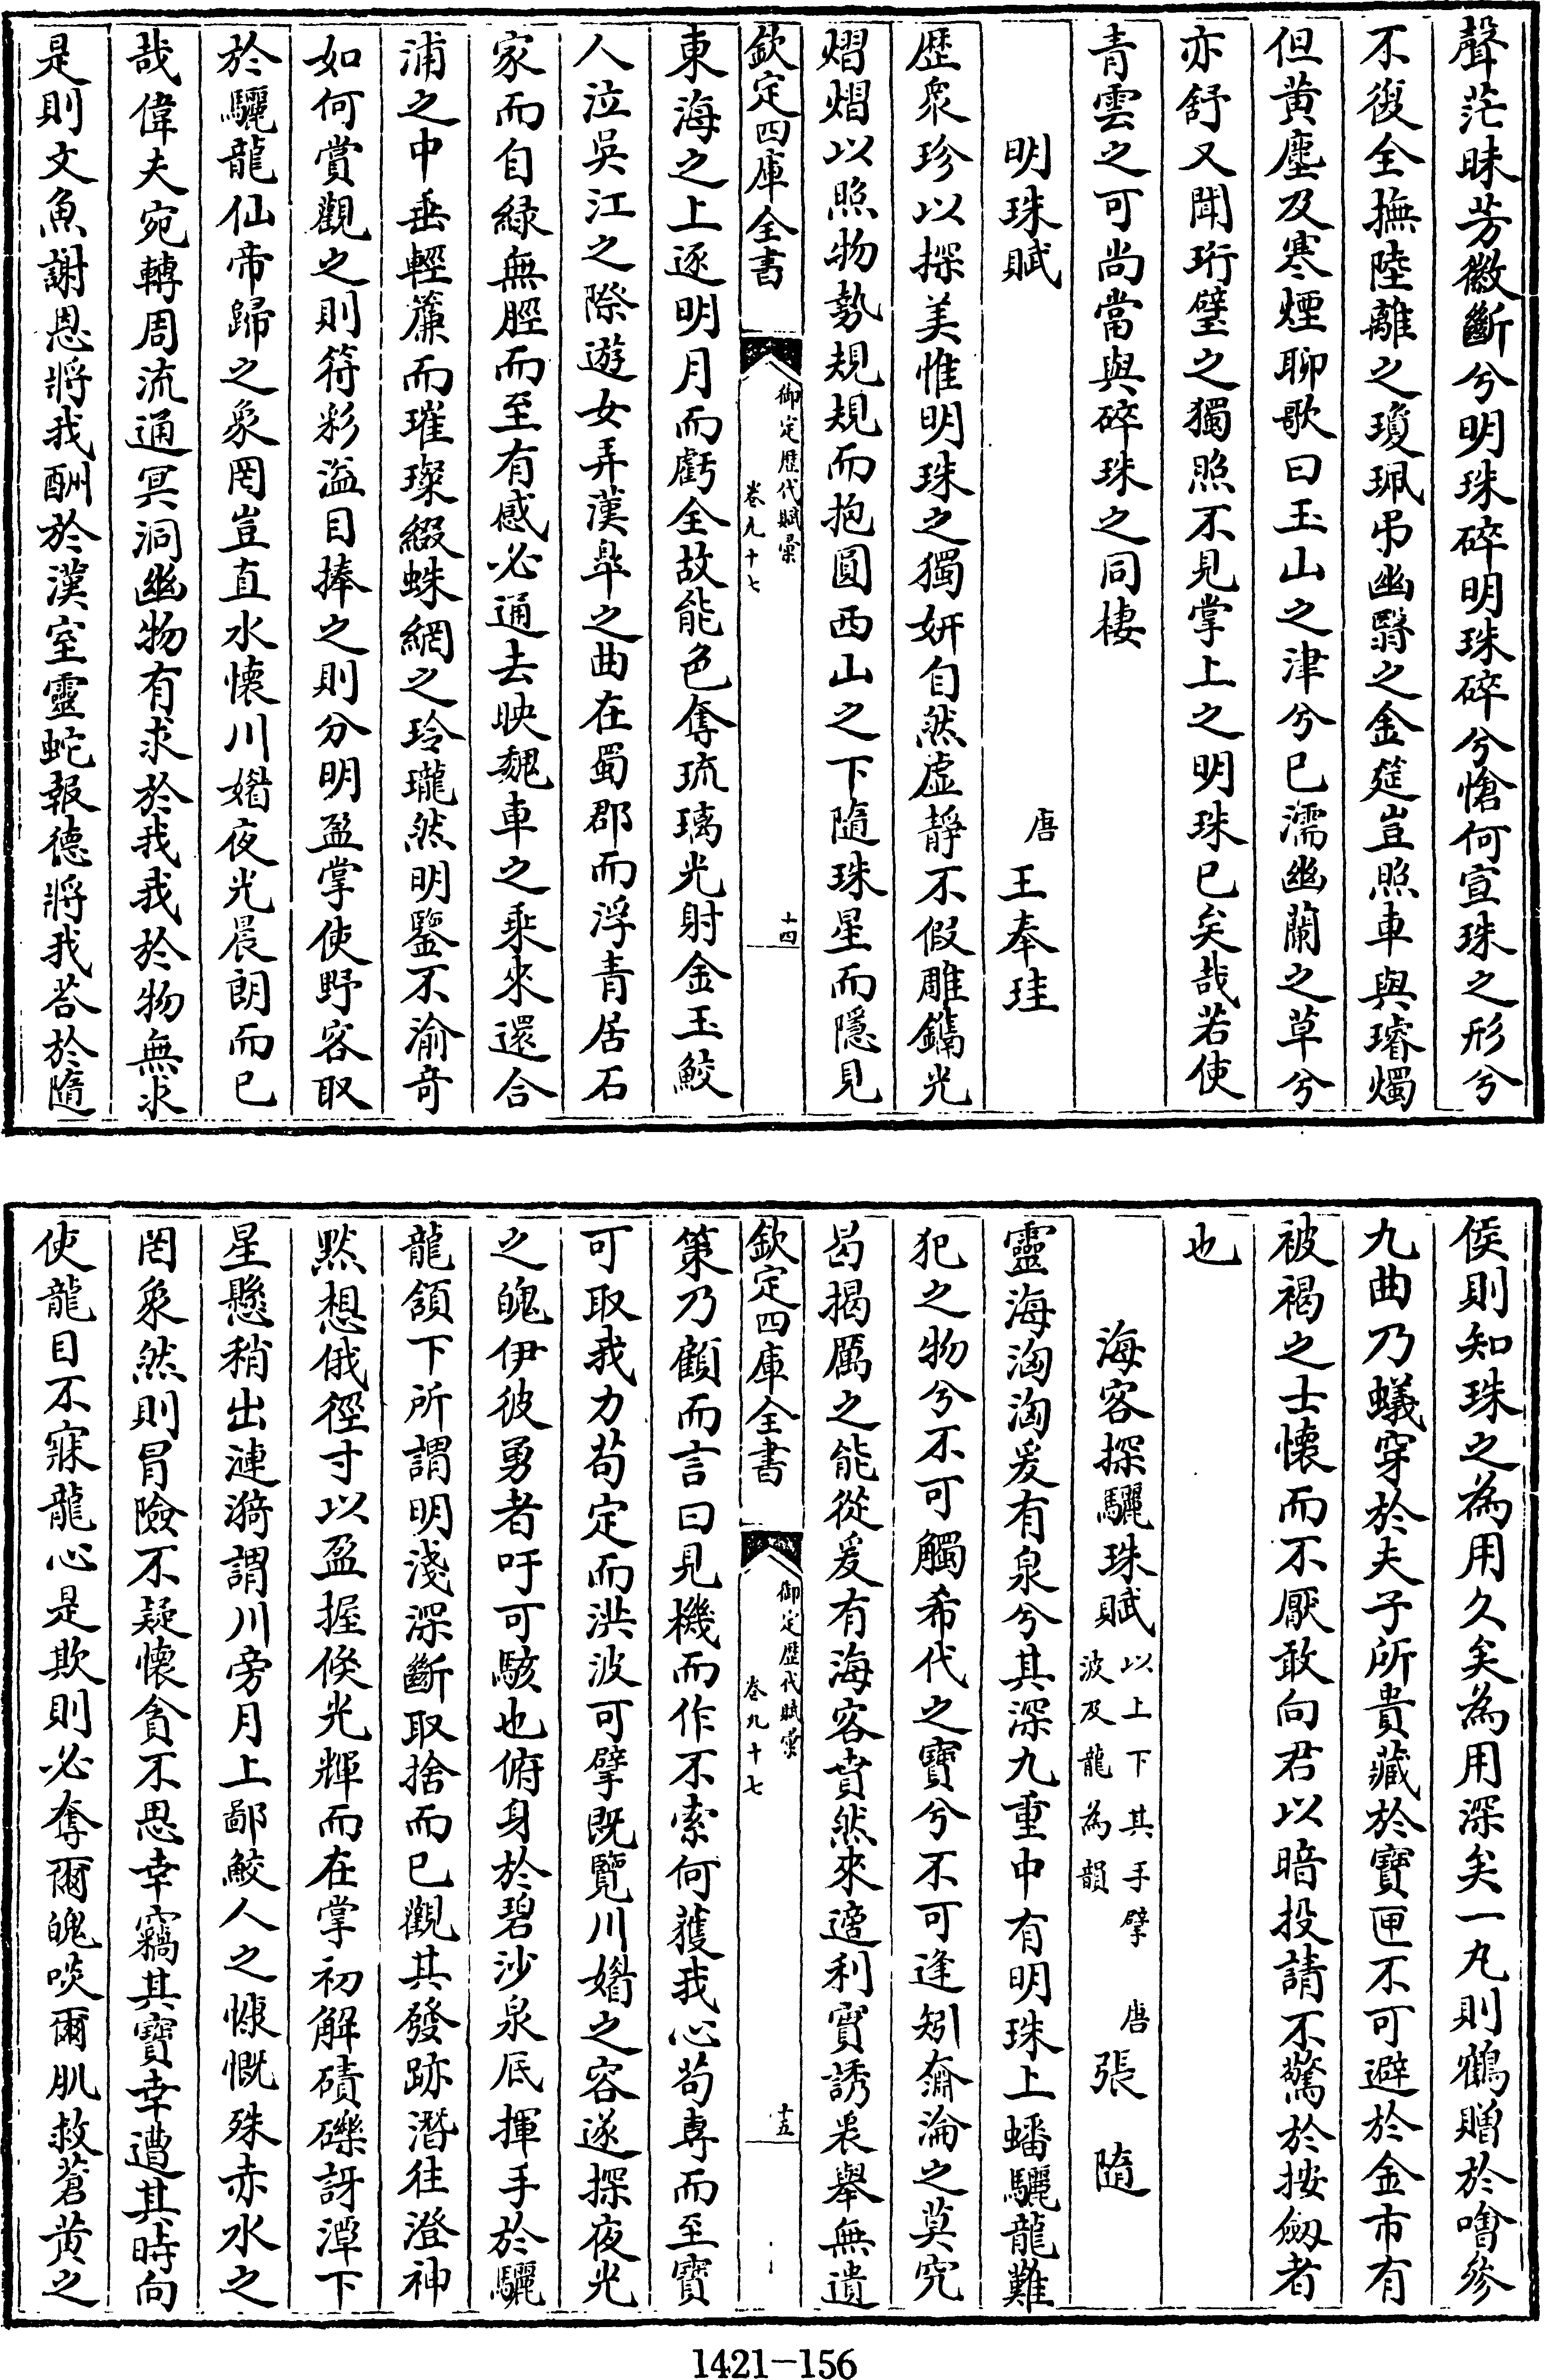 聲茫昧芳徽斷兮明珠碎明珠碎兮愴何宣珠之形兮
不復全撫陸離之瓊珮弔幽翳之金筵豈照車與璿燭
但黄塵及寒煙聊歌曰玉山之津兮已濡幽蘭之草兮
亦舒又聞珩璧之獨照不見掌上之明珠已矣哉若使
青雲之可尚當與碎珠之同棲
明珠賦 唐 王奉珪
歴衆珍以探美惟明珠之獨妍自然虚靜不假雕鐫光
熠熠以照物勢規規而抱圓西山之下隨珠星而隱見
欽定四庫全書 御定歴代賦彙 卷九十七 十四
東海之上逐明月而虧全故能色奪琉璃光射金玉鮫
人泣吳江之際遊女弄漢臯之曲在蜀郡而浮青居石
家而自緑無脛而至有感必通去映魏車之乘來還合
浦之中垂輕簾而璀璨綴蛛網之玲瓏然明鑒不渝竒
如何賞觀之則符彩溢目捧之則分明盈掌使野客取
於驪龍仙帝歸之象罔豈直水懷川媚夜光晨朗而已
哉偉夫宛轉周流通冥洞幽物有求於我我於物無求
是則文魚謝恩將我酬於漢室靈蛇報德將我荅於隨
侯則知珠之為用久矣為用深矣一丸則鶴贈於噲參
九曲乃蟻穿於夫子所貴藏於寶匣不可避於金市有
被褐之士懷而不厭敢向君以暗投請不驚於按劔者
也
海客探驪珠賦 以上下其手擘波及龍為韻 唐 張 隨
靈海洶洶爰有泉兮其深九重中有明珠上蟠驪龍難
犯之物兮不可觸希代之寶兮不可逢矧奫淪之莫究
曷揭厲之能從爰有海客賁然來適利實誘衷舉無遺
欽定四庫全書 御定歴代賦彙 卷九十七 十五
策乃顧而言曰見機而作不索何獲我心苟専而至寶
可取我力苟定而洪波可擘既覽川媚之容遂探夜光
之魄伊彼勇者吁可駭也俯身於碧沙泉底揮手於驪
龍頷下所謂明淺深斷取捨而已觀其發跡潛往澄神
黙想俄徑寸以盈握倏光輝而在掌初解磧礫訝潭下
星懸稍出漣漪謂川旁月上鄙鮫人之慷慨殊赤水之
罔象然則冒險不疑懷貪不思幸竊其寶幸遭其時向
使龍目不寐龍心是欺則必奪爾魄啖爾肌救蒼黄之
1421-156